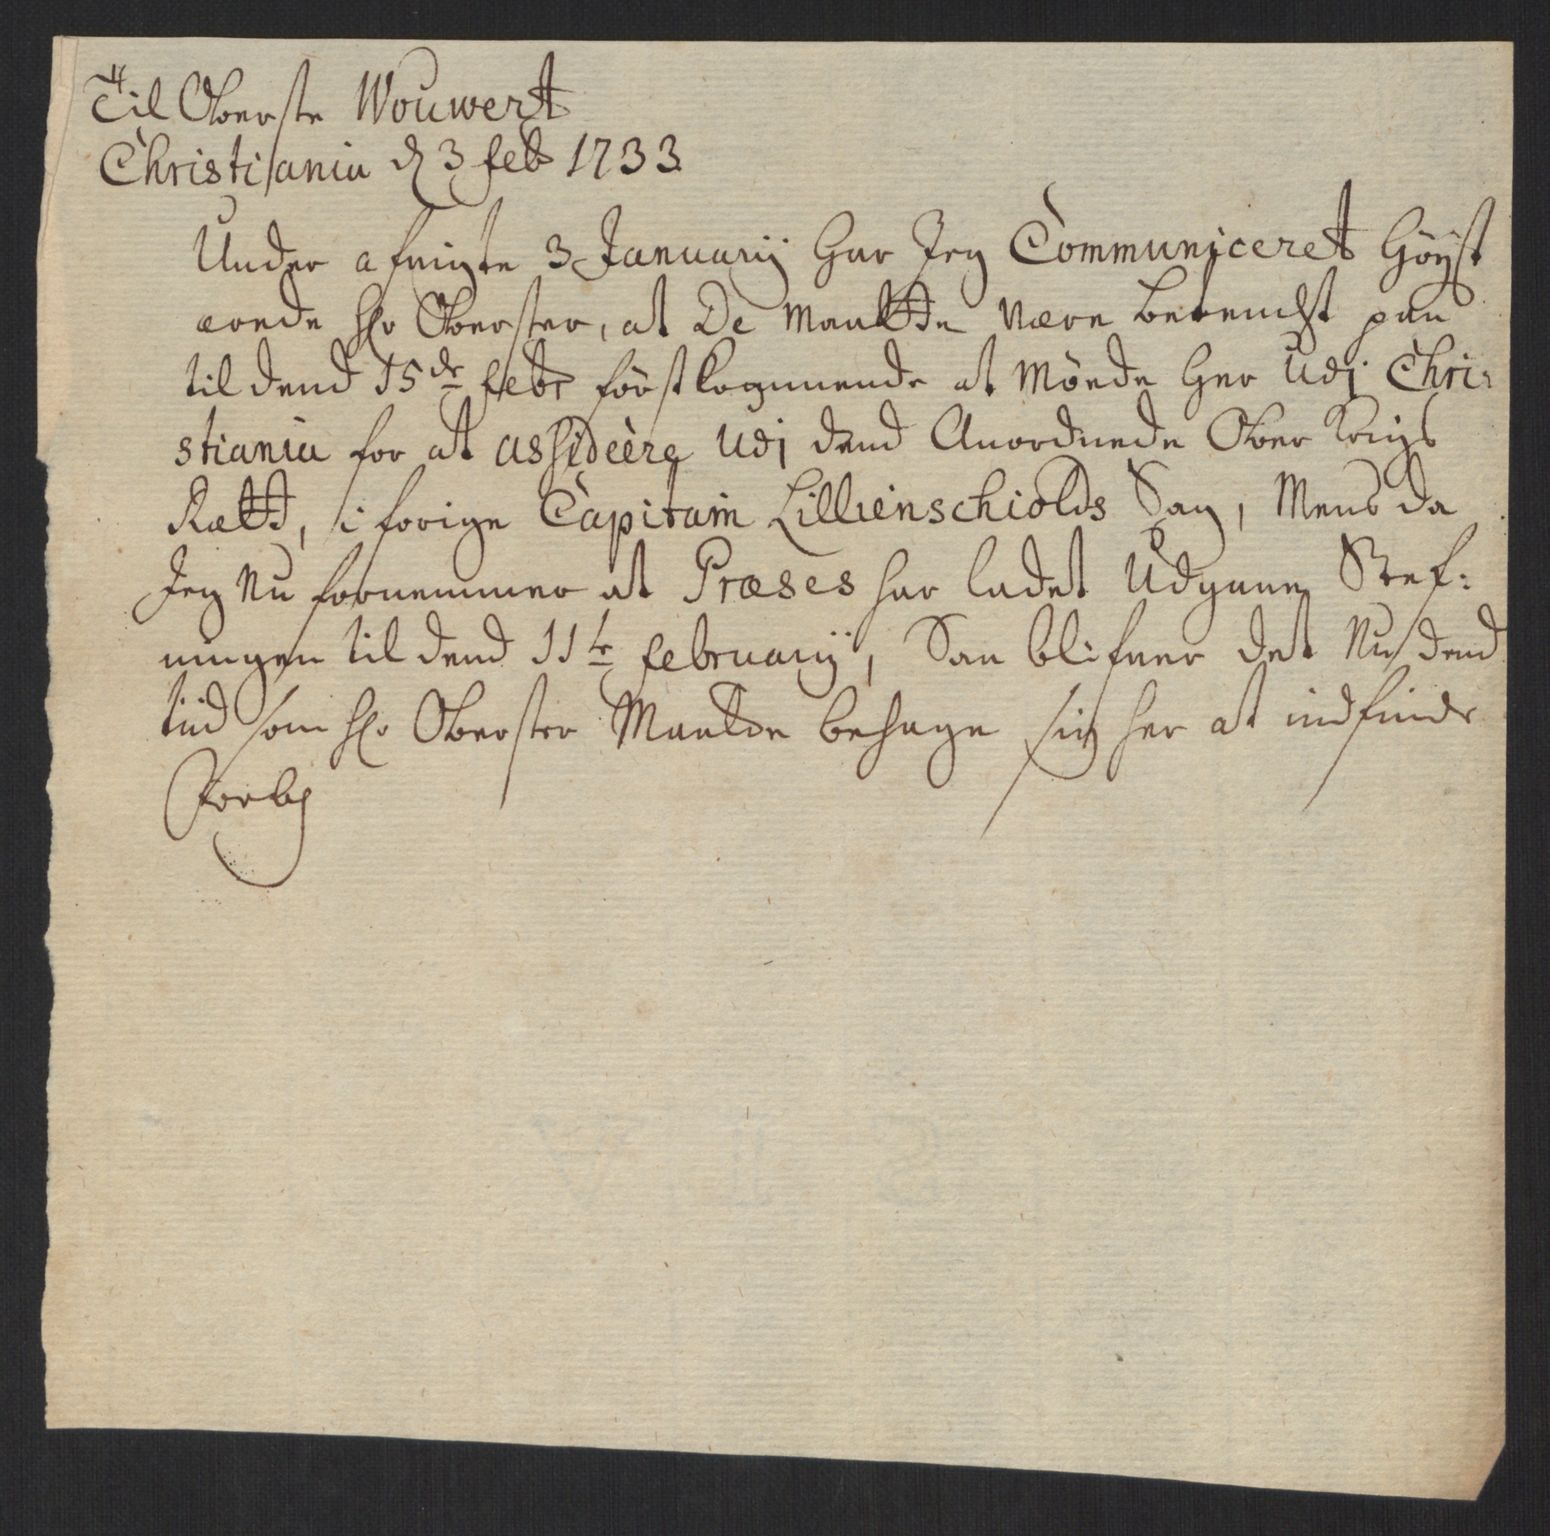 Til Oberste Wouwert
Christiania d 3 feb 1733
Under afvigte 3 Januarij har Jeg Communiceret Höyst
ærede Hr Oberster, at De Maatte være betencht paa
til dend 15de febr först kommende at Möede her Udj Chri-
stiania for at assideere Udj dend Anordnede Ober Krigs
Rætt, i forige Capitain Lillienschiolds Sag, Mens da
Jeg Nu fornemmer at Præses har ladet Udgaae Stef:
ningen til dend 11te februarij, Saa blifver det Nu dend
tiid som Hr Oberster Maatte behage sig her at indfinde
Forbl